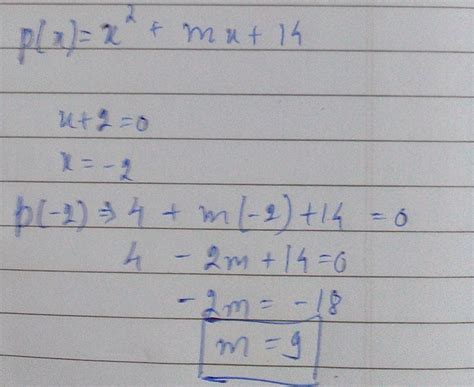 p(x) = x² + mx + 14
x + 2 = 0
x = -2
p(-2) ⇒ 4 + m(-2) + 14 = 0
4 - 2m + 14 = 0
-2m = -18
m = 9